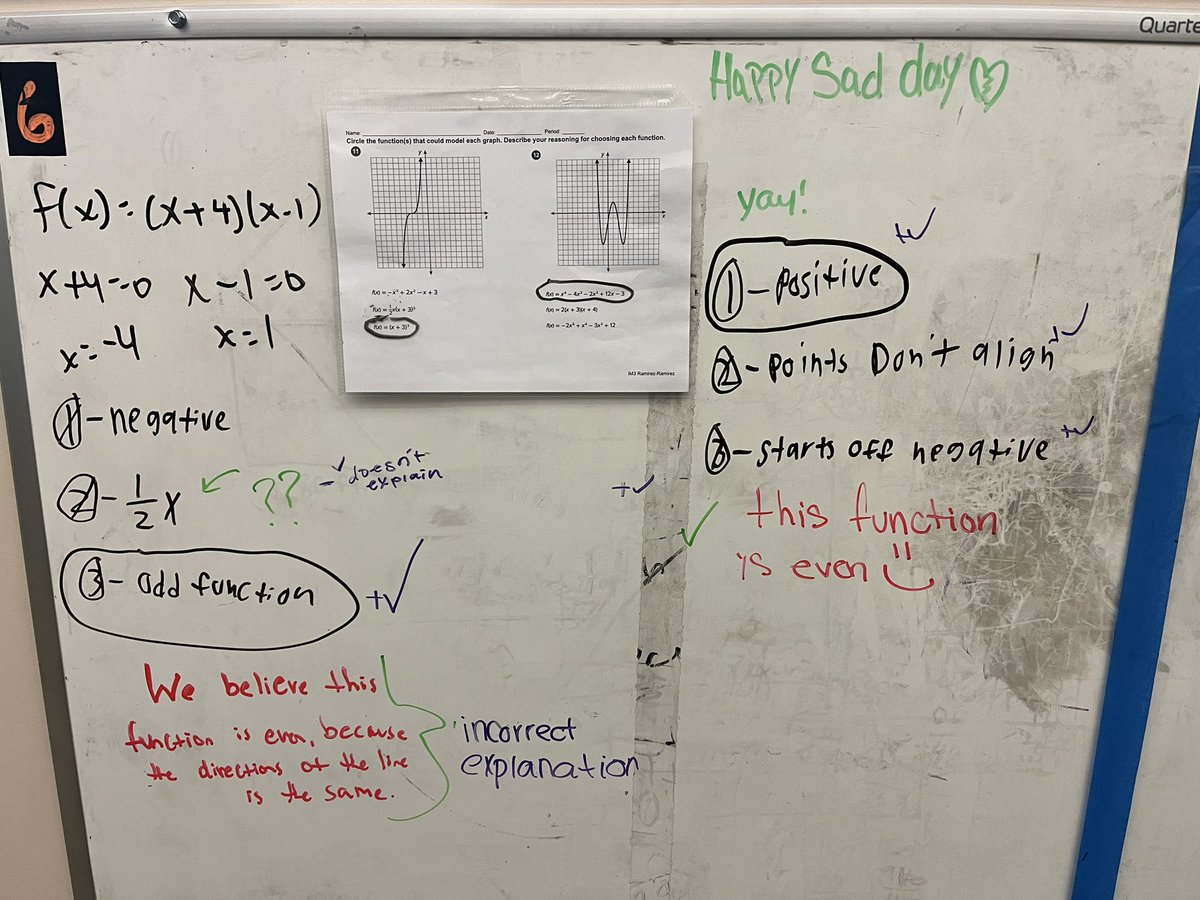 Quarte
6
Happy Sad day
f(x) = (x+4)(x-1)
x+4=0 x-1=0
x=-4 x=1
①-negative
②-½x ?? - doesn't
explain
③- odd function +✓
We believe this
function is even, because
the directions of the line
is the same.
incorrect
explanation
Name: Date: Period:
Circle the function(s) that could model each graph. Describe your reasoning for choosing each function.
11
y
x
f(x) = -x³ + 2x² - x + 3
f(x) = ½x(x + 3)²
f(x) = (x + 3)³
12
y
x
f(x) = x⁴ - 4x³ - 2x² + 12x - 3
f(x) = 2(x + 3)(x + 4)
IM3 Ramirez-Ramirez
yay!
①-positive +✓
②- points Don't align +✓
③-starts off negative +✓
+✓
this function
is even